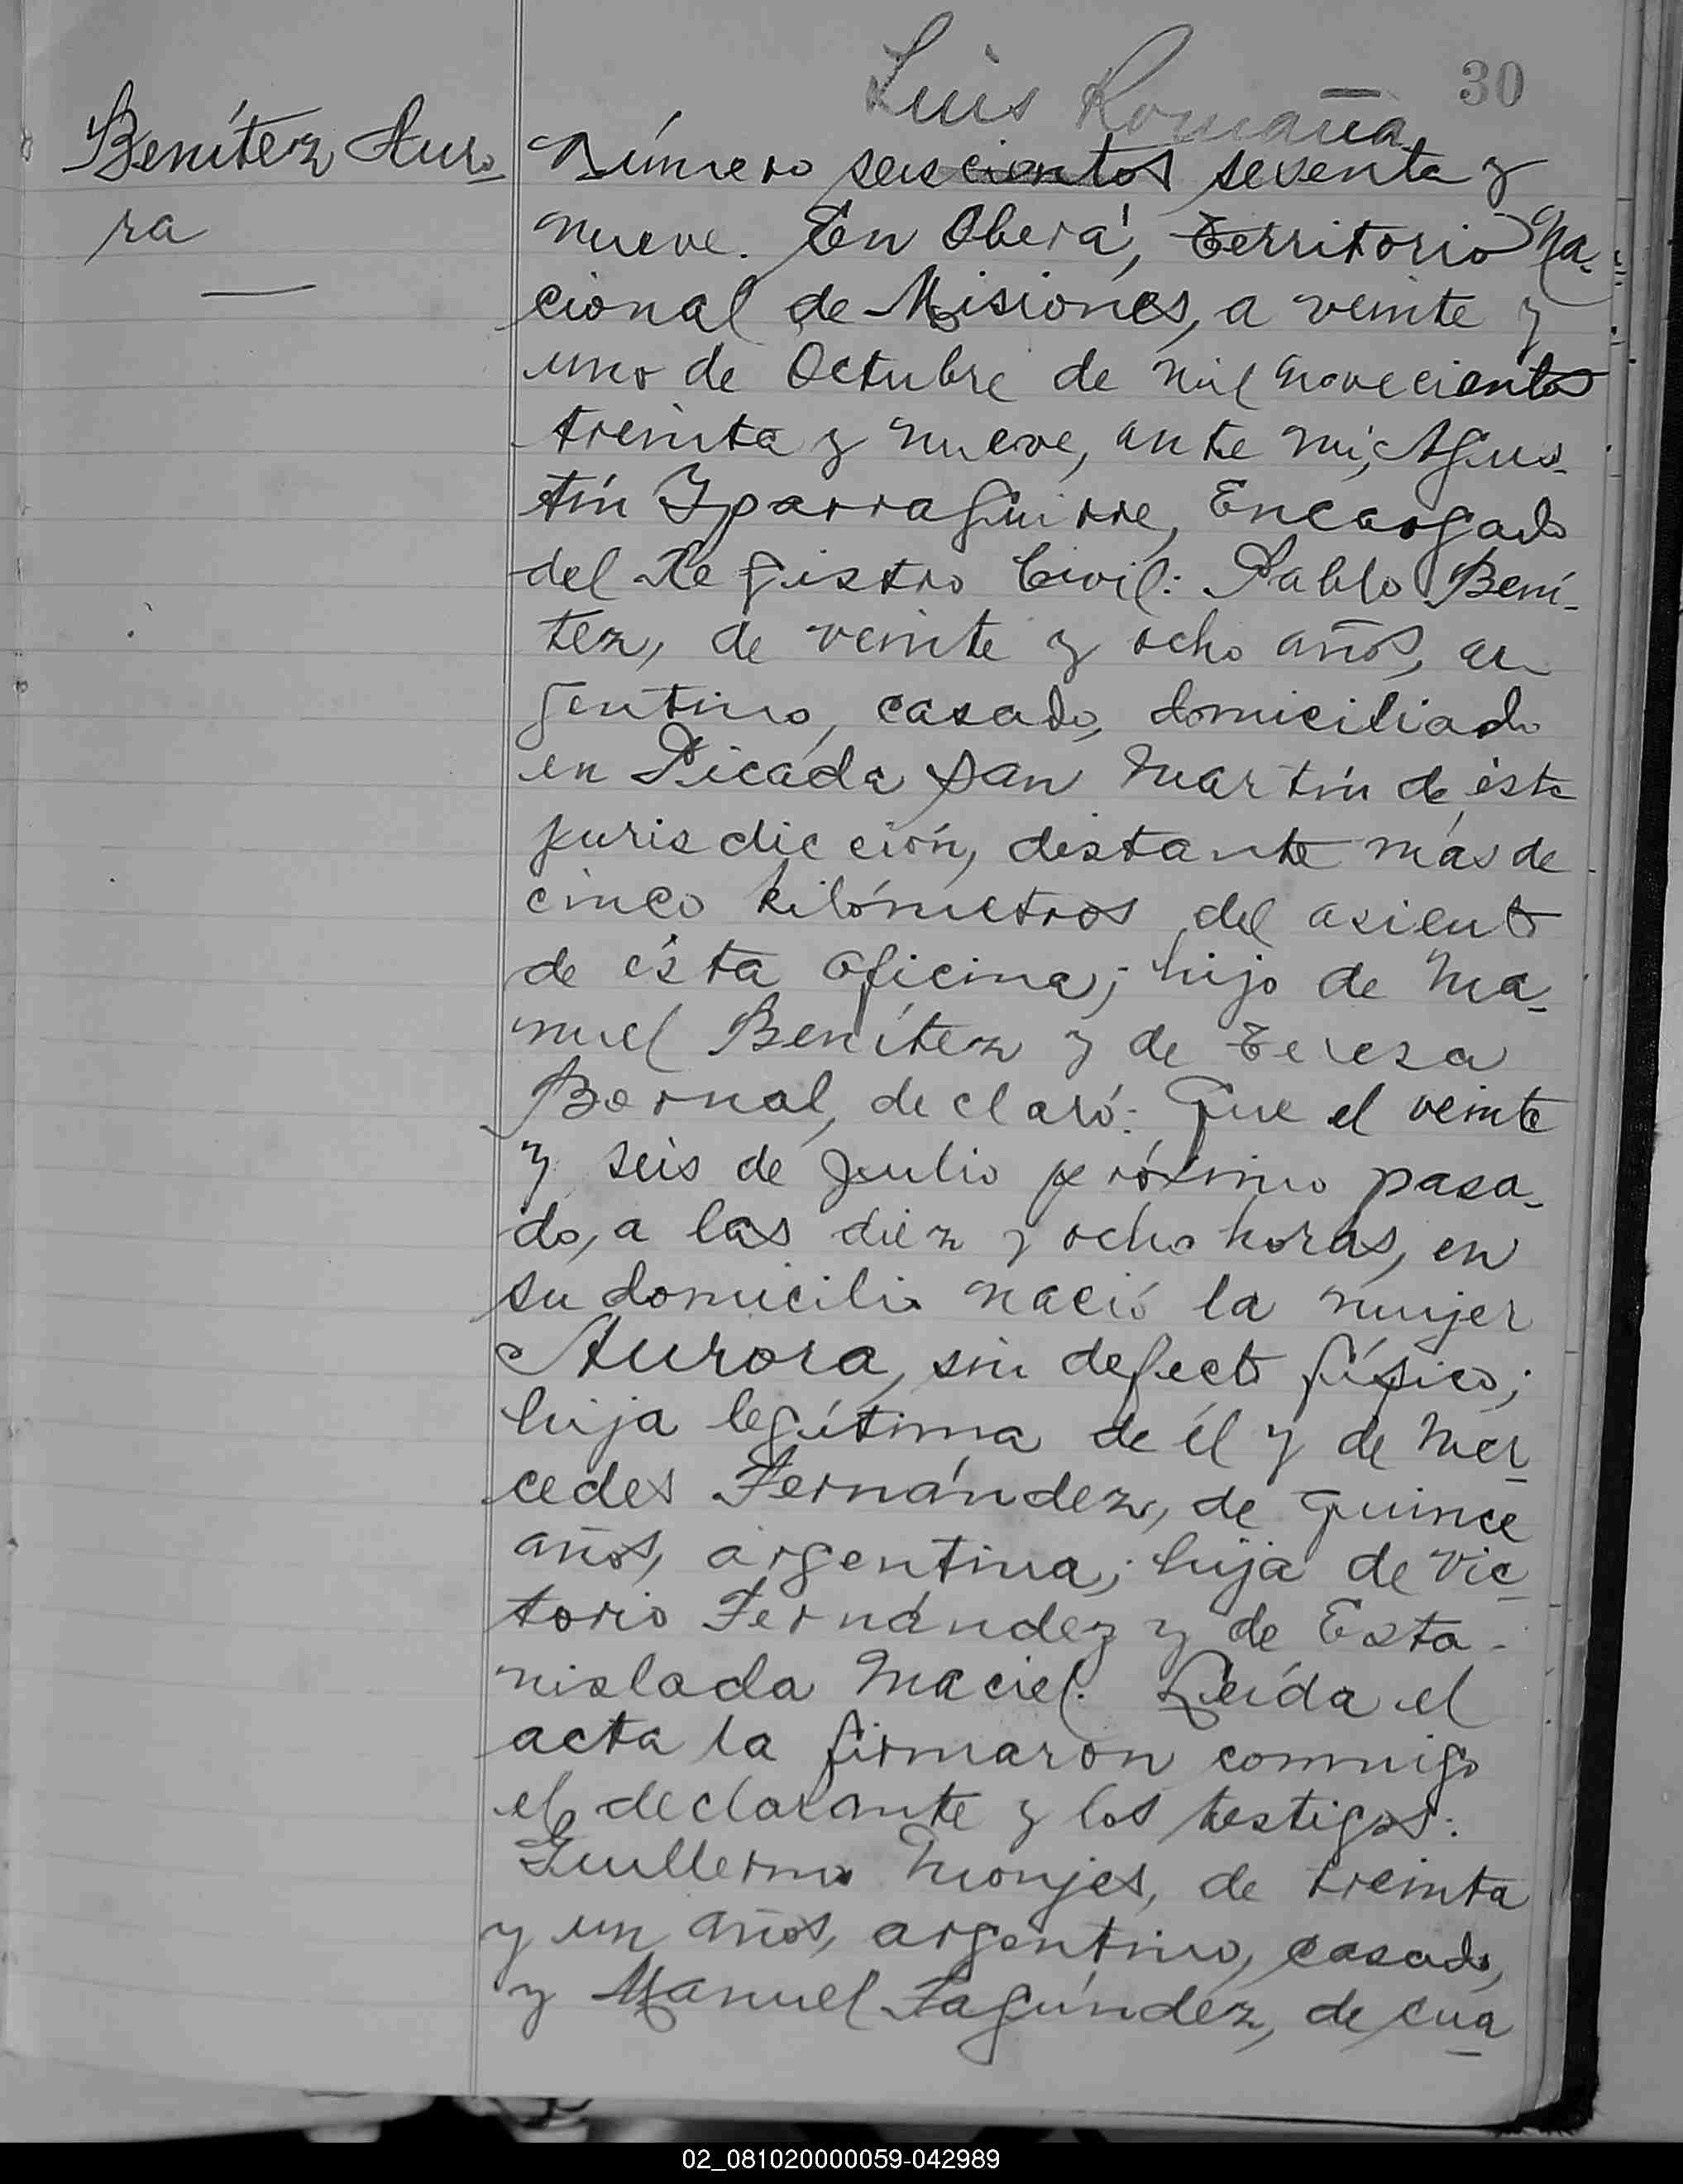 Luis Romaña
30
Benítez Auro-
ra
Número seiscientos setenta y
nueve. En Oberá, Territorio Na-
cional de Misiones, a veinte y
uno de Octubre de mil novecientos
treinta y nueve, ante mí, Agus-
tín Yparraguirre, Encargado
del Registro Civil: Pablo Bení-
tez, de veinte y ocho años, ar-
gentino, casado, domiciliado
en Picada San Martín de ésta
jurisdicción, distante más de
cinco kilómetros del asiento
de ésta oficina; hijo de Ma-
nuel Benítez y de Teresa
Bernal, declaró: Que el veinte
y seis de Julio próximo pasa-
do, a las diez y ocho horas, en
su domicilio nació la mujer
Aurora, sin defecto físico;
hija legítima de él y de Mer-
cedes Fernández, de quince
años, argentina; hija de Vic-
torio Fernández y de Esta-
nislada Maciel. Leída el
acta la firmaron conmigo
el declarante y los testigos:
Guillermo Monjes, de treinta
y un años, argentino, casado,
y Manuel Fagúndez, de cua-
02_081020000059-042989